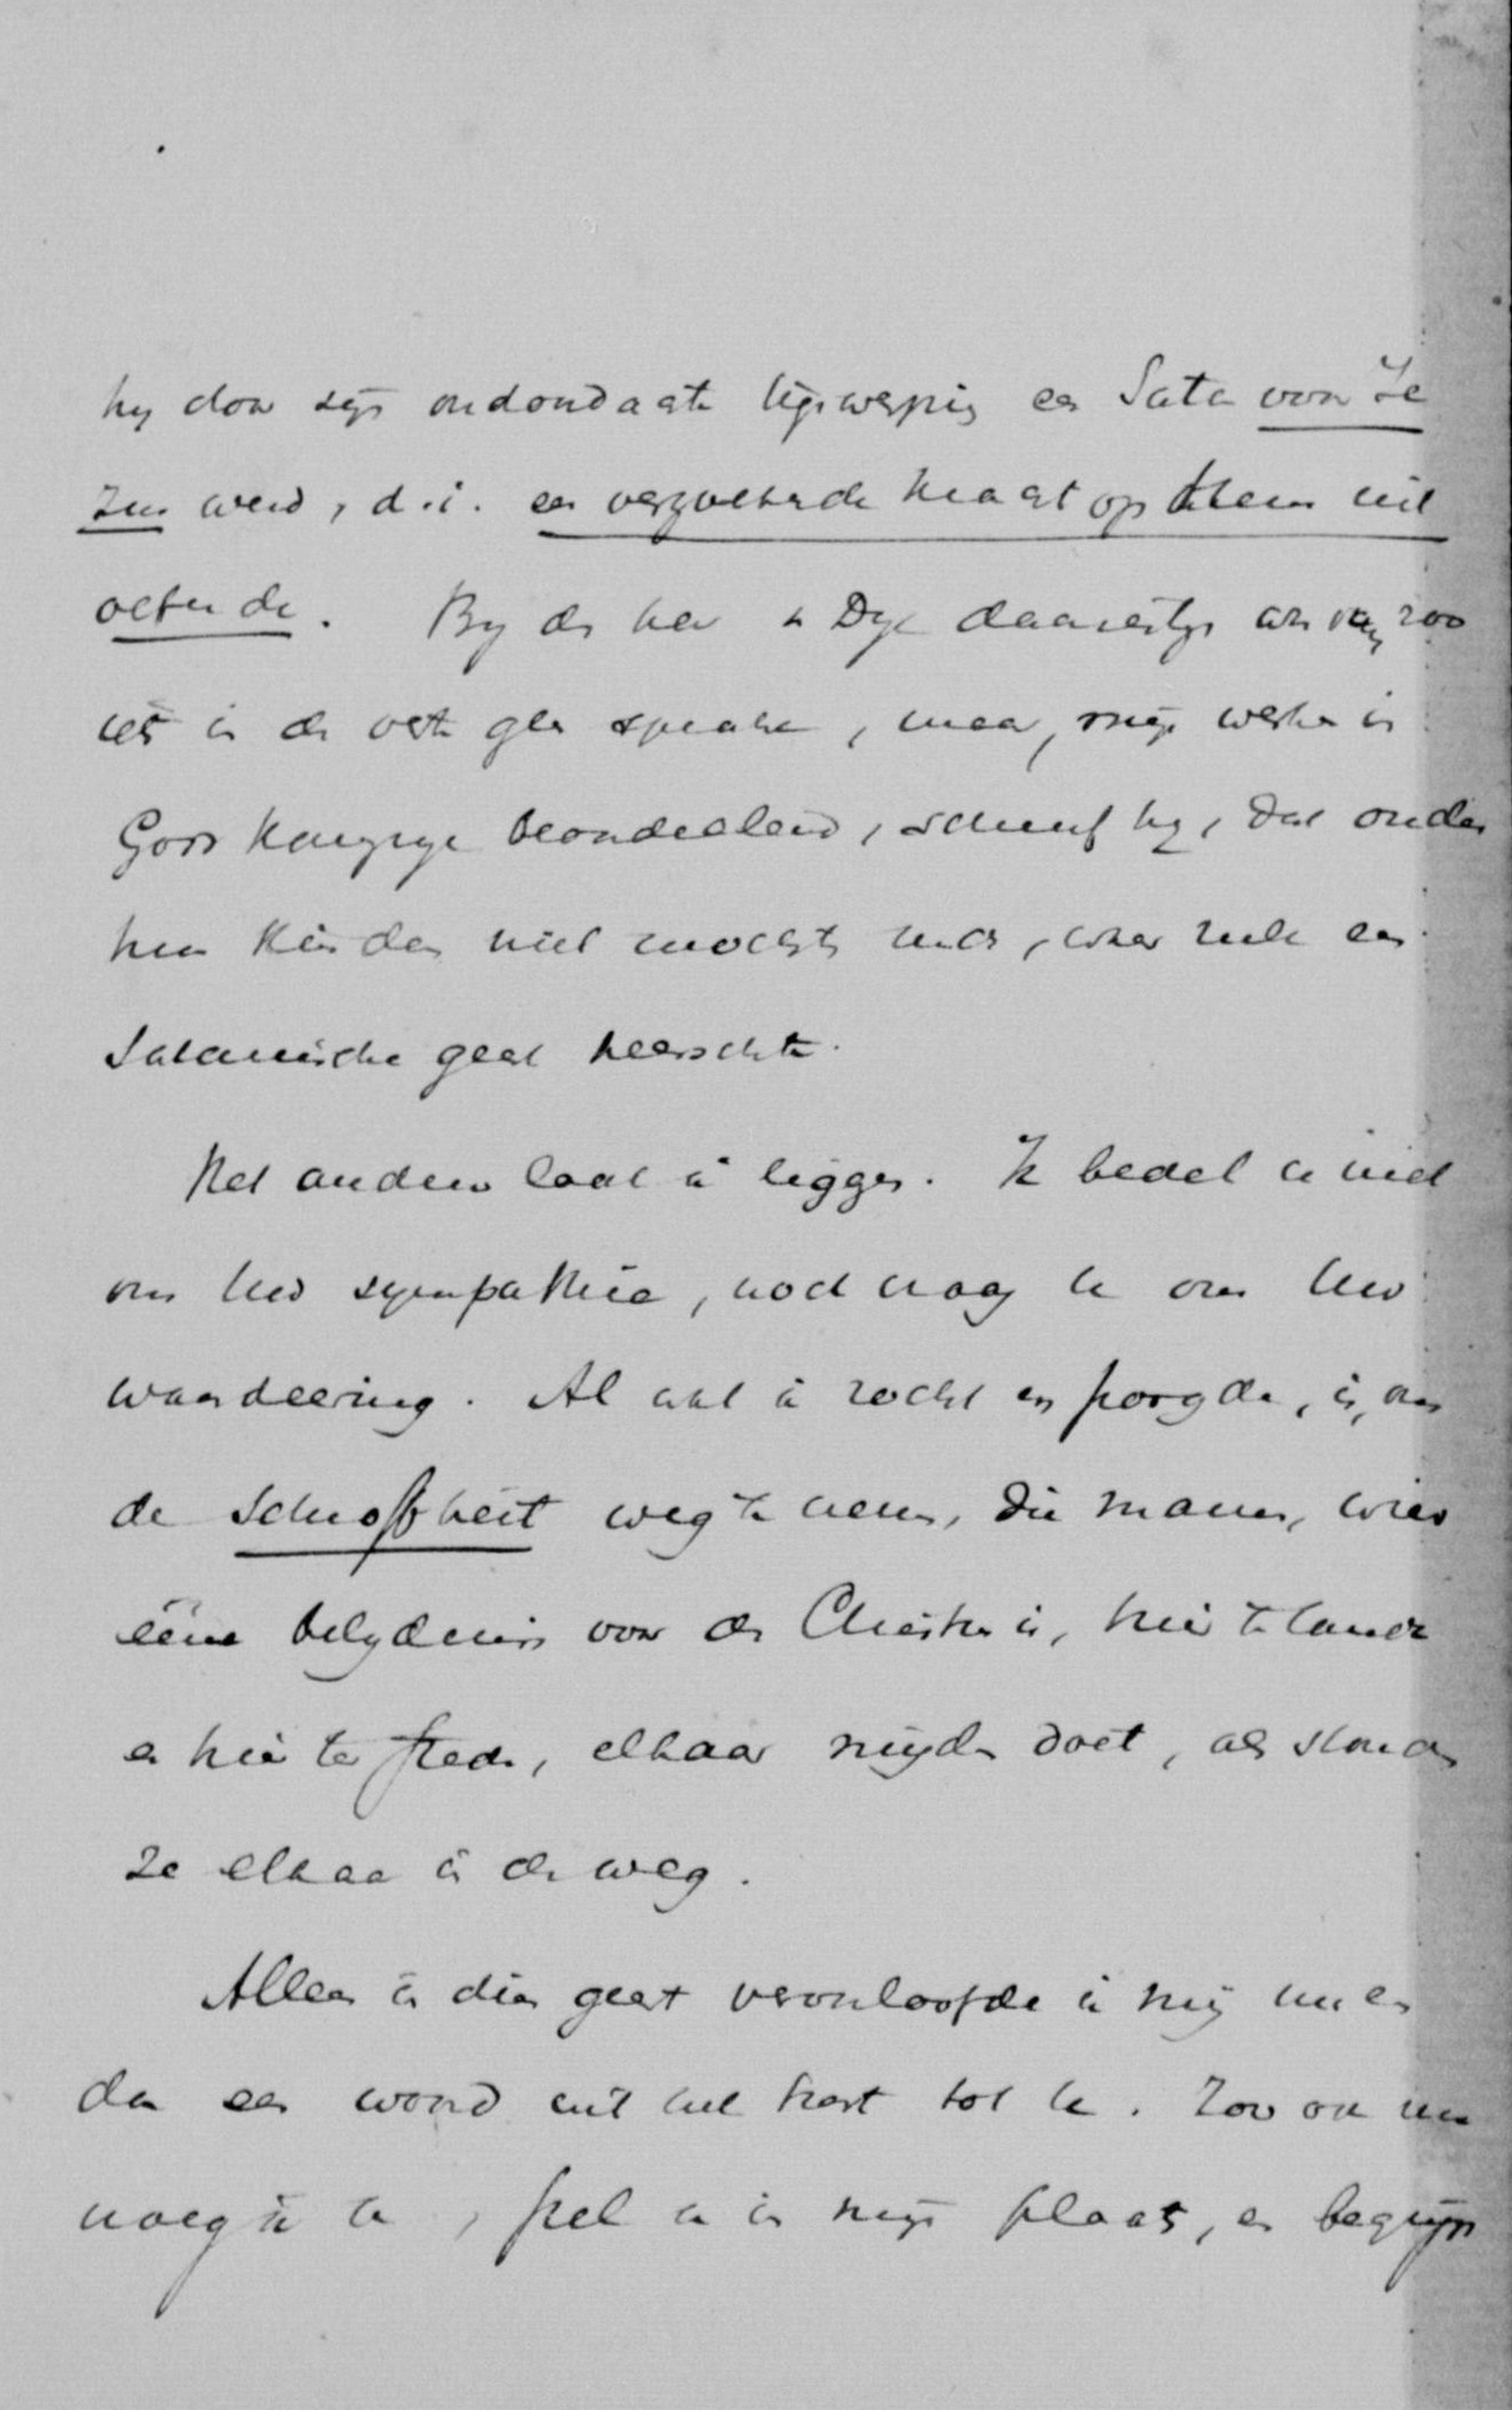 hij door zijn ondoordachte tegenwerping een Satan voor Je
zus werd, d.i. een verzoekende kracht op Hem uit
oefende. By den heer v Dyk daarentegen was van zoo
iets in de verte geen sprake, maar, mijn werken in
Gods Koningrijk beoordeelend, schreef hij, dat onder
hun Kinderen niet mocht , waar zulk een
Satanische geest heerschte.
Het andere laat ik liggen. Ik bedel U niet
om Uw sympathie, noch vraag U om Uw
waardeering. Al wat ik zocht en poogde, is, om
de schrofheit weg te nemen, die mannen, wier
ééne belydenis voor den Christus is, hier te lande
en hier ter stede, elkaar mijden doet, als stonden
ze elkaar in den weg.
Alleen in dien geest veroorloofde ik mij nu en
dan een woord uit het hart tot U. Zoo ook nu
vroeg ik U, stel U in mijn plaats, en begrijp